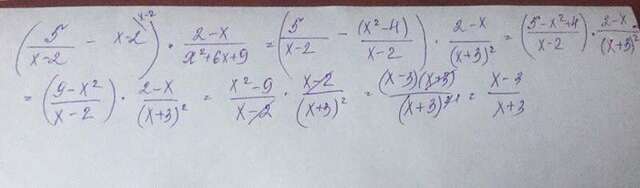 (5/(x-2) - x-2^(x-2)) · (2-x)/(x²+6x+9) = (5/(x-2) - (x²-4)/(x-2)) · (2-x)/(x+3)² = ((5-x²+4)/(x-2)) · (2-x)/(x+3)²
= ((9-x²)/(x-2)) · (2-x)/(x+3)² = (x²-9)/(x-2) · (x-2)/(x+3)² = (x-3)(x+3)/(x+3)² = (x-3)/(x+3)